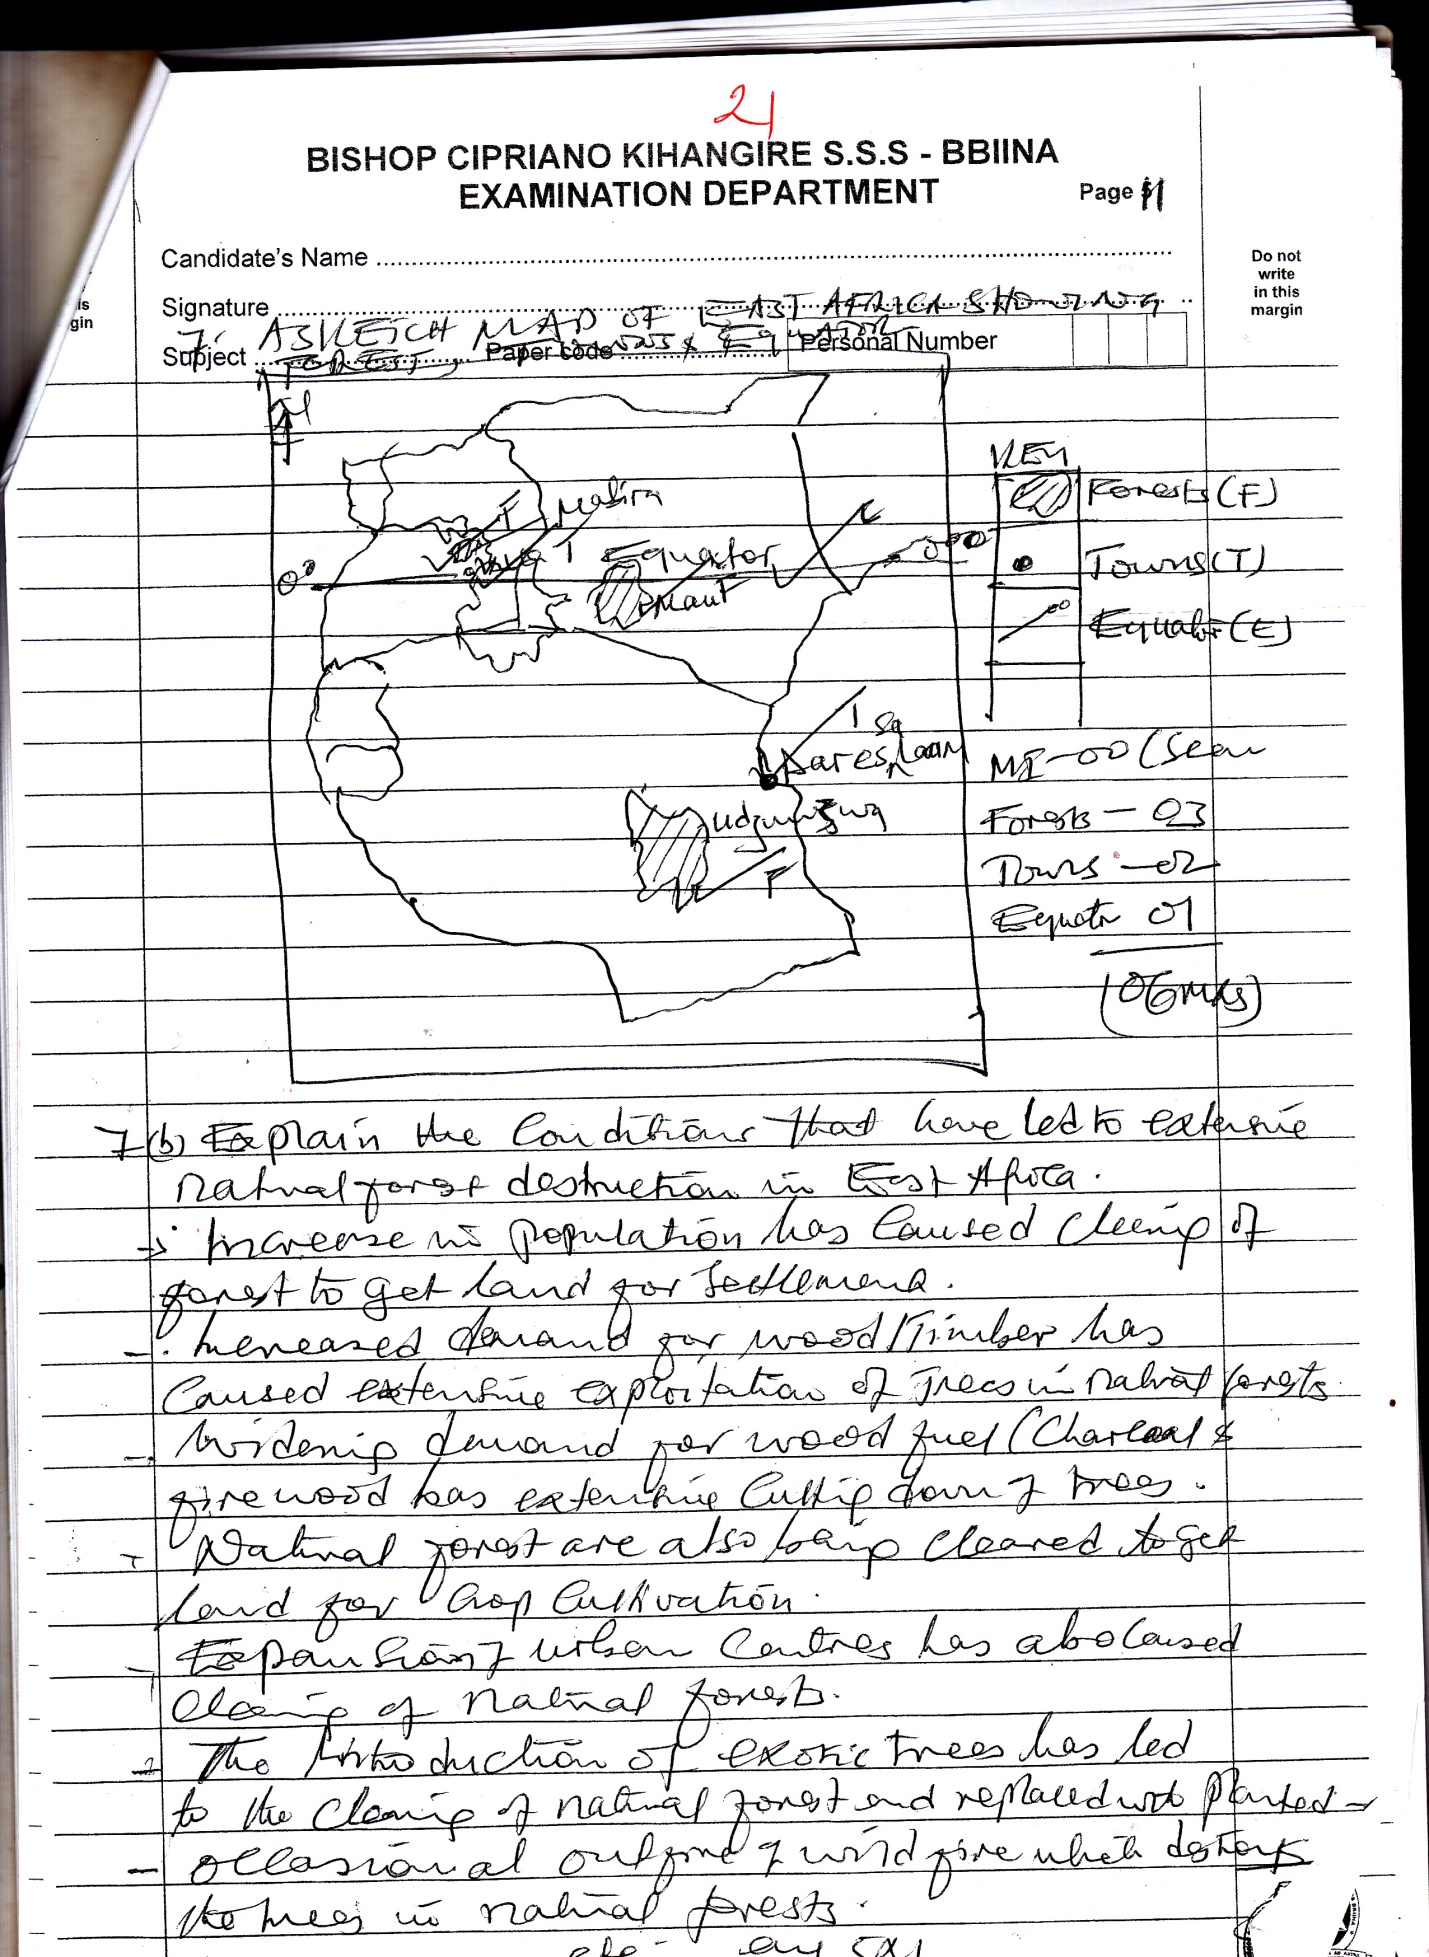 21
BISHOP CIPRIANO KIHANGIRE S.S.S - BBIINA
EXAMINATION DEPARTMENT
Page 11
Candidate's Name
Do not
write
in this
margin
is
gin
Signature
7. A SKETCH MAP OF EAST AFRICA SHOWING
FOREST, TOWNS & EQUATOR
Subject
Paper code
Personal Number
N
KEY
Forests (F)
F Mabira
T
Equator
0°
Mau F
Towns (T)
Equator (E)
E
T
Daressalaam
Udzungwa
F
Forests - 03
Towns - 02
Equator 01
(06mks)
7(b) Explain the Conditions that have led to extensive
natural forest destruction in East Africa.
- Increase in population has caused clearing of
forest to get land for settlement.
- Increased demand for wood/Timber has
Caused extensive exploitation of Trees in natural forests
- Widening demand for wood fuel (Charcoal &
firewood has extensive cutting down of trees.
- Natural forest are also being cleared to get
land for crop cultivation.
- Expansion of urban Centres has also caused
clearing of natural forests.
- The Introduction of exotic trees has led
to the clearing of natural forest and replaced with planted
- Occasional of wild fire which destroys
the trees in natural forests.
any 5x1